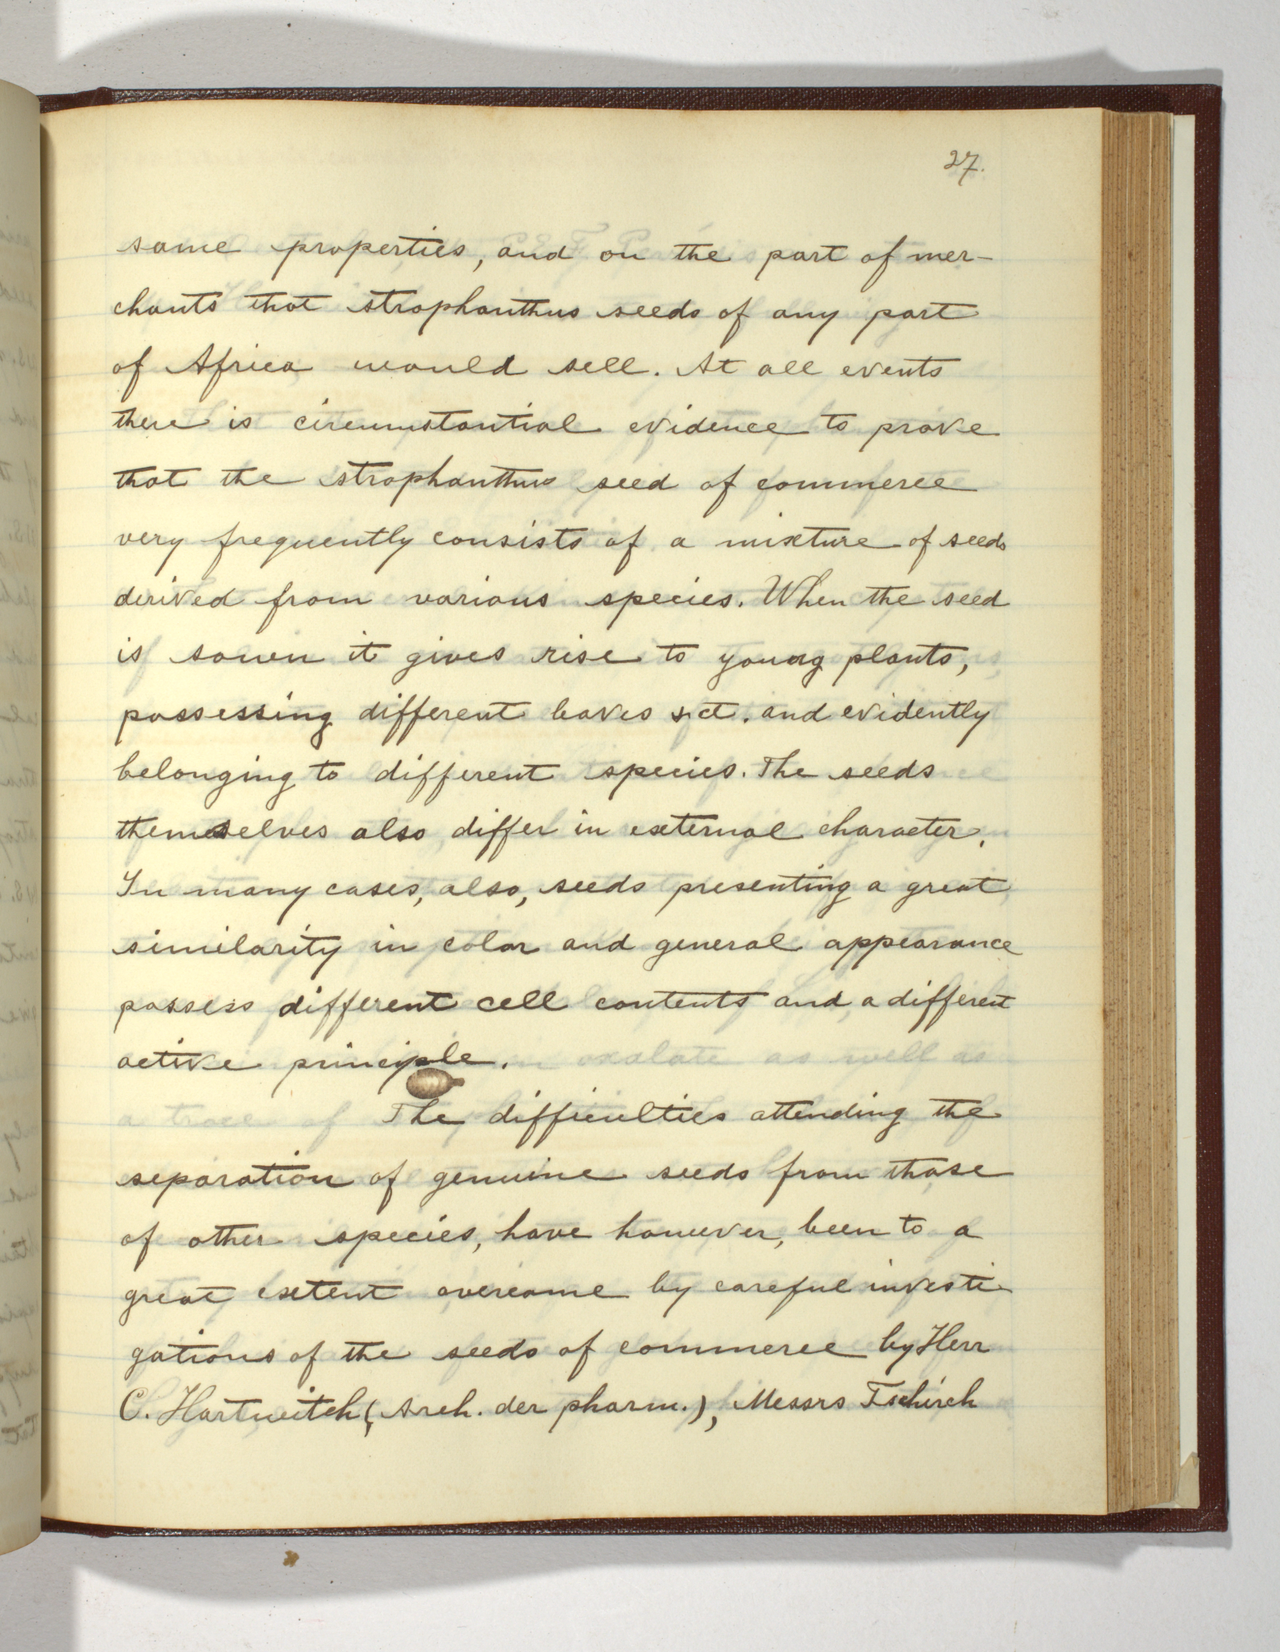 27.
same properties, and on the part of mer-
chants that strophanthus seeds of any part
of Africa would sell. At all events
there is circumstantial evidence to prove
that the strophanthus seed of commerce
very frequently consists of a mixture of seeds
derived from various species. When the seed
is sown it gives rise to young plants,
possessing different leaves &ct. and evidently
belonging to different species. The seeds
themselves also differ in external character.
In many cases, also, seeds presenting a great
similarity in color and general appearance
possess different cell contents and a different
active principle.
The difficulties attending the
separation of genuine seeds from those
of other species, have however, been to a
great extent overcome by careful investi-
gations of the seeds of commerce by Herr
C. Hartwitch (Arch. der pharm.), Messrs Tschirch